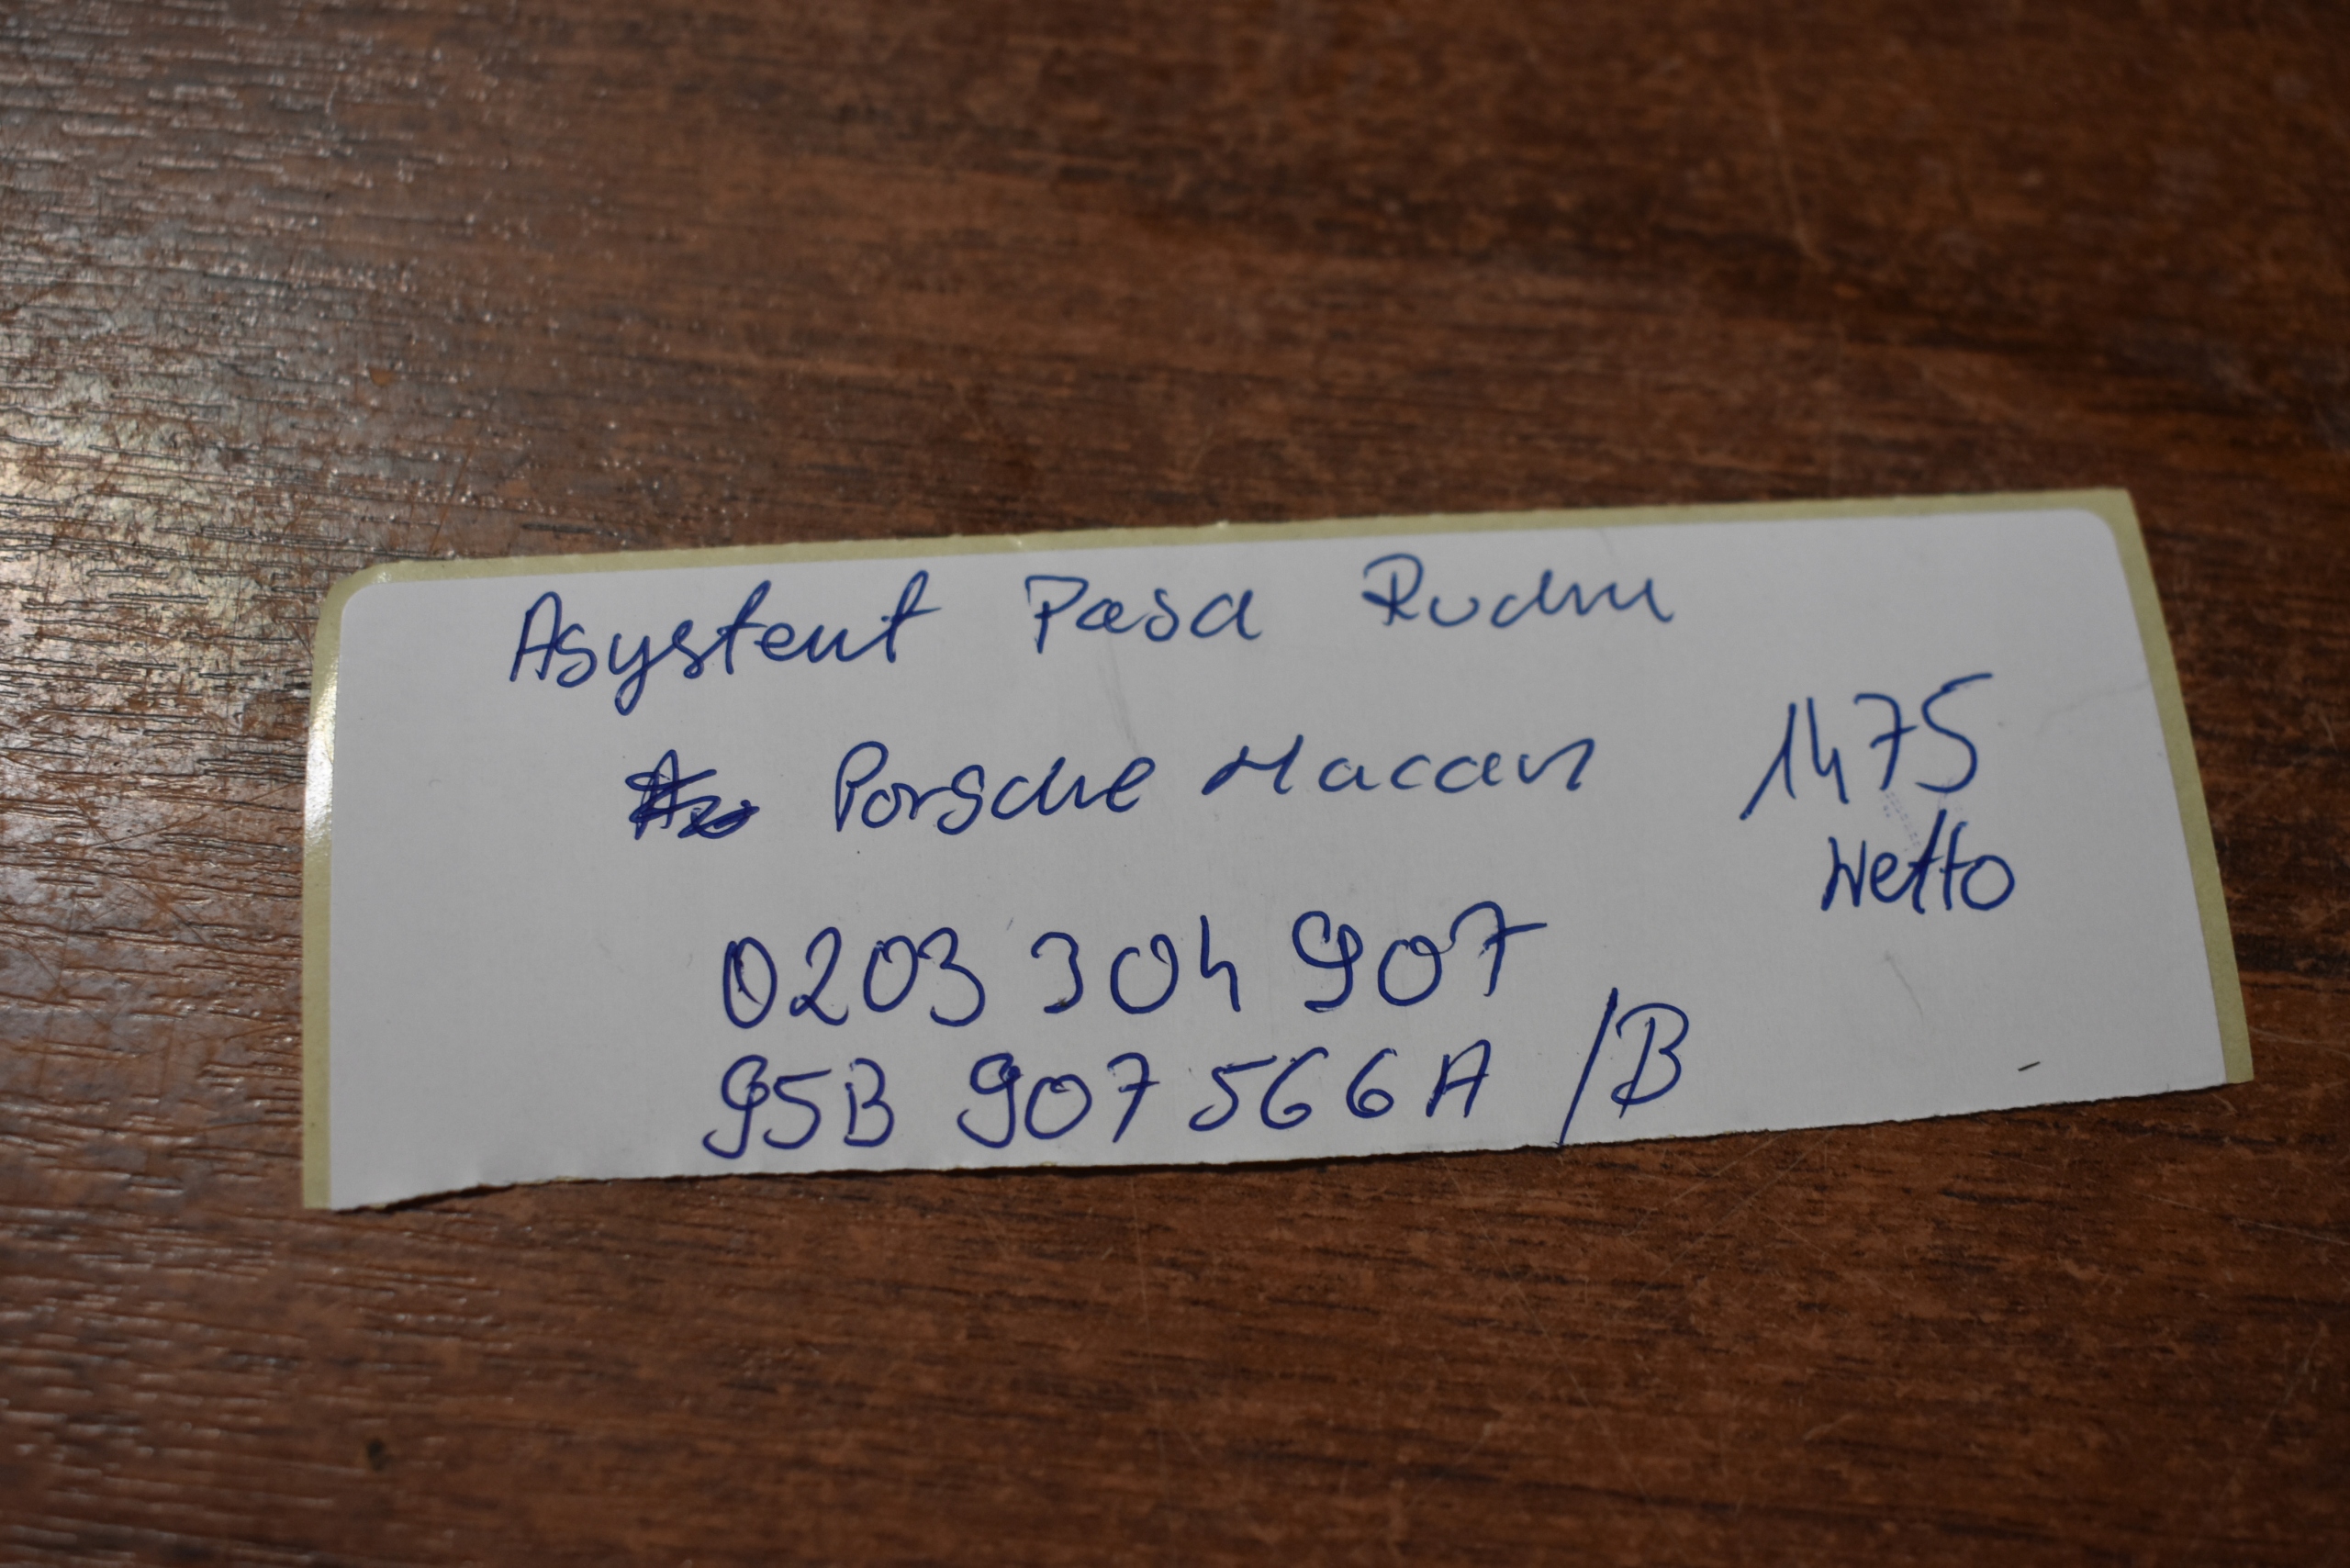 Asystent Pasa Ruchu
Porsche Macan
1475
Netto
0203 304 907
95B 907 566A /B